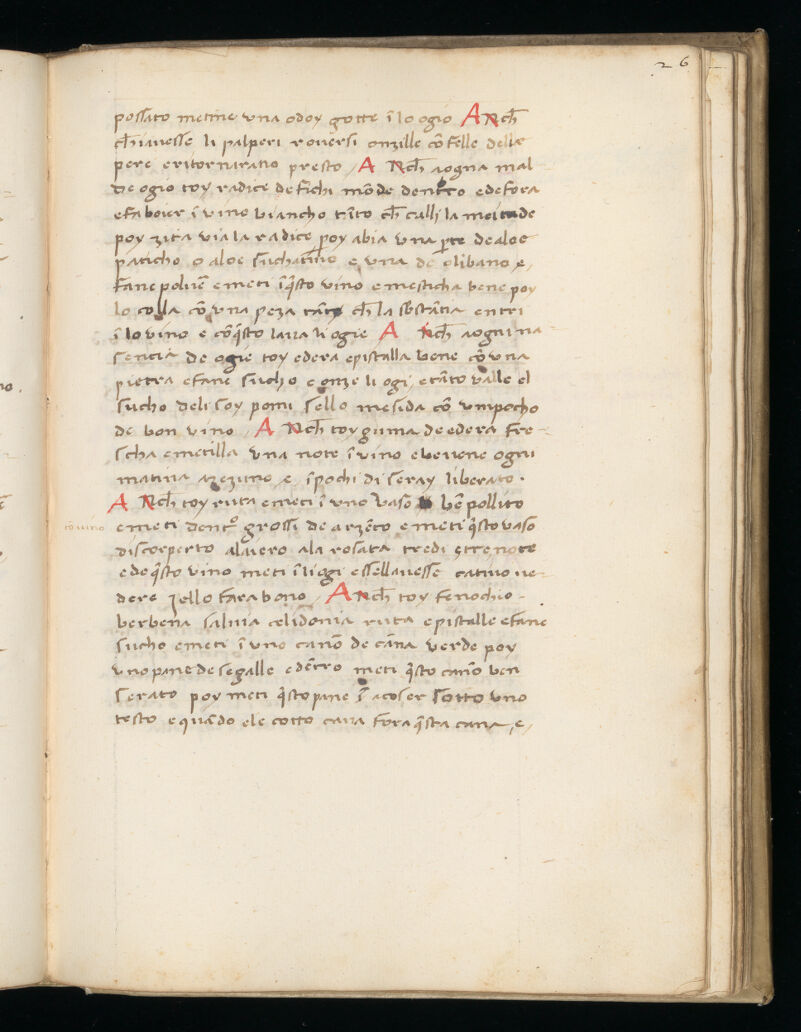 26
possato metine una o doy gotte ĩ lo ogio ANch̃
ch̃ iavesse li palperi roversi onzille cõ felle delle
pere e ritorniratio presto / A Nch̃ a ogna mal
de ogio toy radice de fichi mõde dentro e de fora
e fa boier ĩ vino biancho tãto ch̃ calli la meitade
poy zita via la radice poy abia una pte de aloe
paticho o aloe suchatrino e una de olibano e /
fane polvẽ e meti ĩ q̃sto vino e mesticha bene poy
lo colla cõ una peza tãto ch̃ la sbstãtia entri
ĩ lo vino e cõ q̃sto lava li ogie A Nch̃ a ogni na
sencia de ogie toy edera e pistalla bene cõ una
pietra e fane sucho e onze li ogi, e tãto valle el
sucho deli soy pomi sello mesida cõ un pocho
de bon vino / A Nch̃ toy guma de edera fre-
scha e metilla una note ĩ vino e bevene ogni
matina azezuno e ĩ pochi di seray liberato .
A Nch̃ toy ruta e meti ĩ uno vaso bẽ pollito
cõ vino
e meti dentº grossi de arzẽto e meti q̃sto vaso
discoperto al aiero a la rosata tredi e tre note
e de q̃sto vino meti ĩ li ogi e sselavesse cativo ve-
dere zello fara bono / ANch̃ toy fenochio -
berbena salvia celidonia ruta e pistalle e fane
sucho e meti ĩ uno canõ de cãna verde poy
uno pane de segalle e dẽtro meti q̃sto canõ ben
serato poy meti q̃sto pane ĩ a coser sotto uno
testo e quãdo ele cotto cava fora q̃sta cana, e /